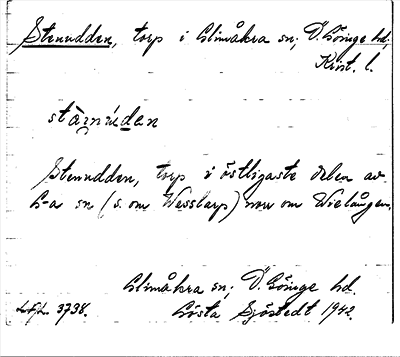 Stenudden, torp i Glimåkra sn; Ö. Göinge hd,
Krist. l.
stàe̥núden
Stenudden, torp i östligaste delen av
G-a sn (s. om Wesslarp) nv om Wielången.
Glimåkra sn; Ö. Göinge hd.
Gösta Sjöstedt 1942.
3738.